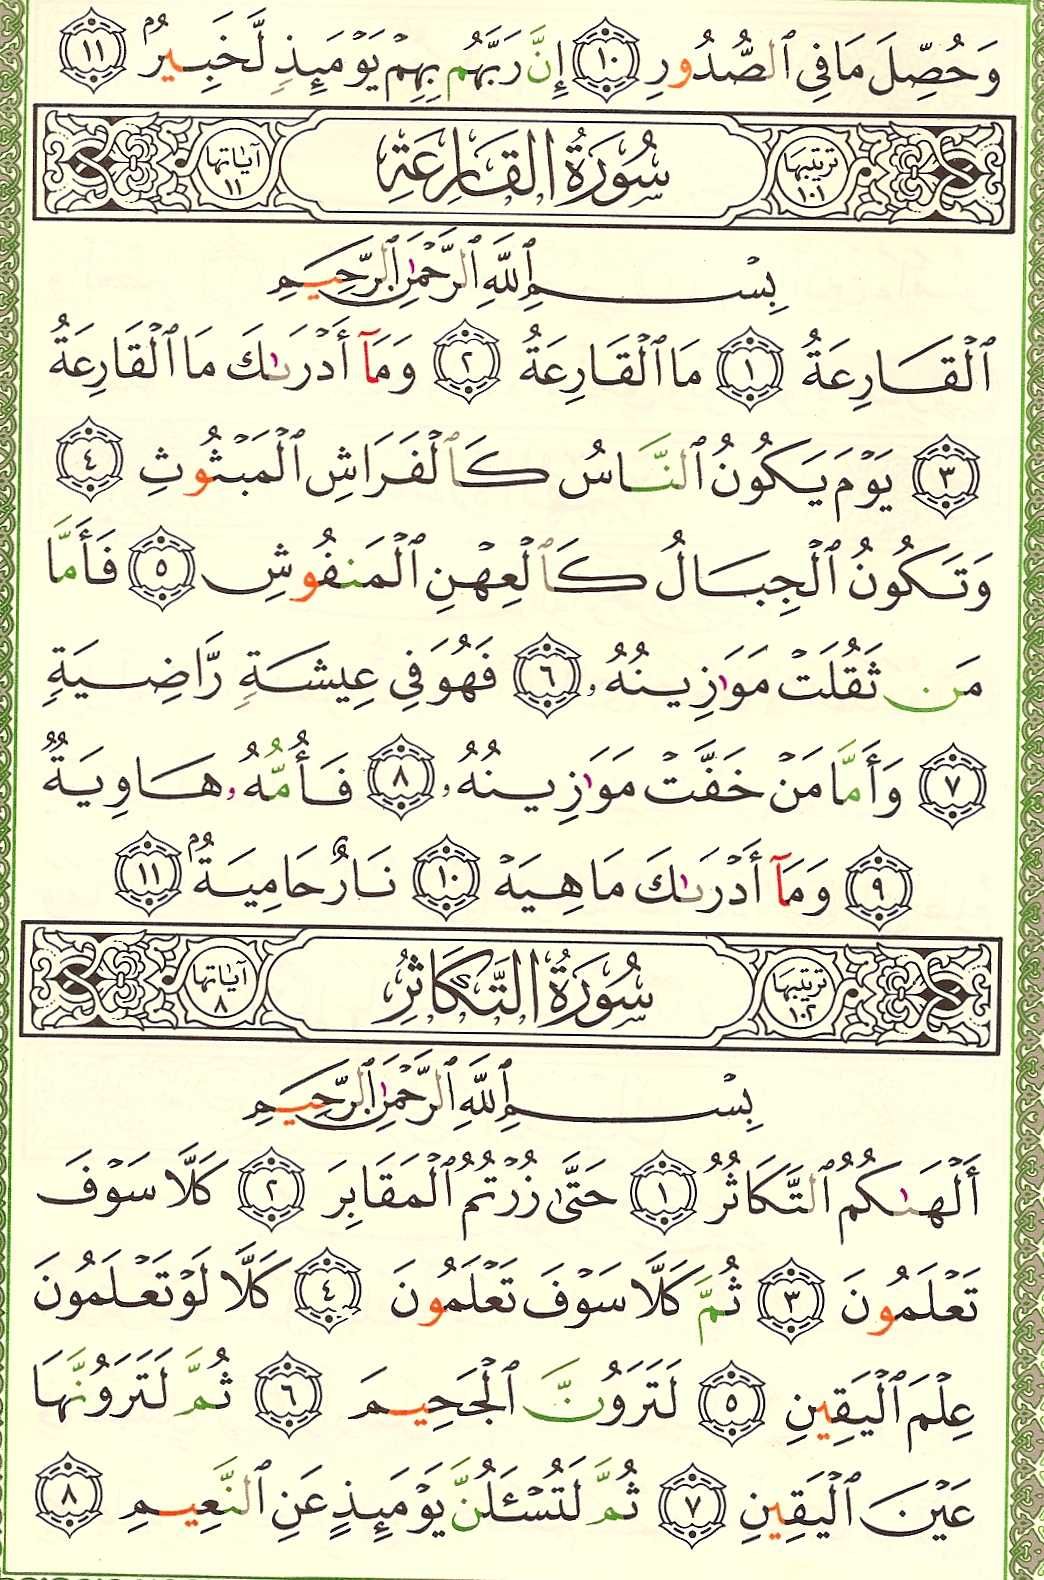 وَحُصِّلَ مَا فِي ٱلصُّدُورِ ١٠ إِنَّ رَبَّهُم بِهِمْ يَوْمَئِذٍ لَّخَبِيرٌ ١١
ترتيبها ١٠١ سُورَةُ القَارِعَةِ آياتها ١١
بِسْمِ ٱللَّهِ ٱلرَّحْمَٰنِ ٱلرَّحِيمِ
ٱلْقَارِعَةُ ١ مَا ٱلْقَارِعَةُ ٢ وَمَآ أَدْرَىٰكَ مَا ٱلْقَارِعَةُ
٣ يَوْمَ يَكُونُ ٱلنَّاسُ كَٱلْفَرَاشِ ٱلْمَبْثُوثِ ٤
وَتَكُونُ ٱلْجِبَالُ كَٱلْعِهْنِ ٱلْمَنفُوشِ ٥ فَأَمَّا
مَن ثَقُلَتْ مَوَٰزِينُهُۥ ٦ فَهُوَ فِي عِيشَةٍ رَّاضِيَةٍ
٧ وَأَمَّا مَنْ خَفَّتْ مَوَٰزِينُهُۥ ٨ فَأُمُّهُۥ هَاوِيَةٌ
٩ وَمَآ أَدْرَىٰكَ مَا هِيَهْ ١٠ نَارٌ حَامِيَةٌ ١١
ترتيبها ١٠٢ سُورَةُ التَّكَاثُرِ آياتها ٨
بِسْمِ ٱللَّهِ ٱلرَّحْمَٰنِ ٱلرَّحِيمِ
أَلْهَىٰكُمُ ٱلتَّكَاثُرُ ١ حَتَّىٰ زُرْتُمُ ٱلْمَقَابِرَ ٢ كَلَّا سَوْفَ
تَعْلَمُونَ ٣ ثُمَّ كَلَّا سَوْفَ تَعْلَمُونَ ٤ كَلَّا لَوْ تَعْلَمُونَ
عِلْمَ ٱلْيَقِينِ ٥ لَتَرَوُنَّ ٱلْجَحِيمَ ٦ ثُمَّ لَتَرَوُنَّهَا
عَيْنَ ٱلْيَقِينِ ٧ ثُمَّ لَتُسْـَٔلُنَّ يَوْمَئِذٍ عَنِ ٱلنَّعِيمِ ٨